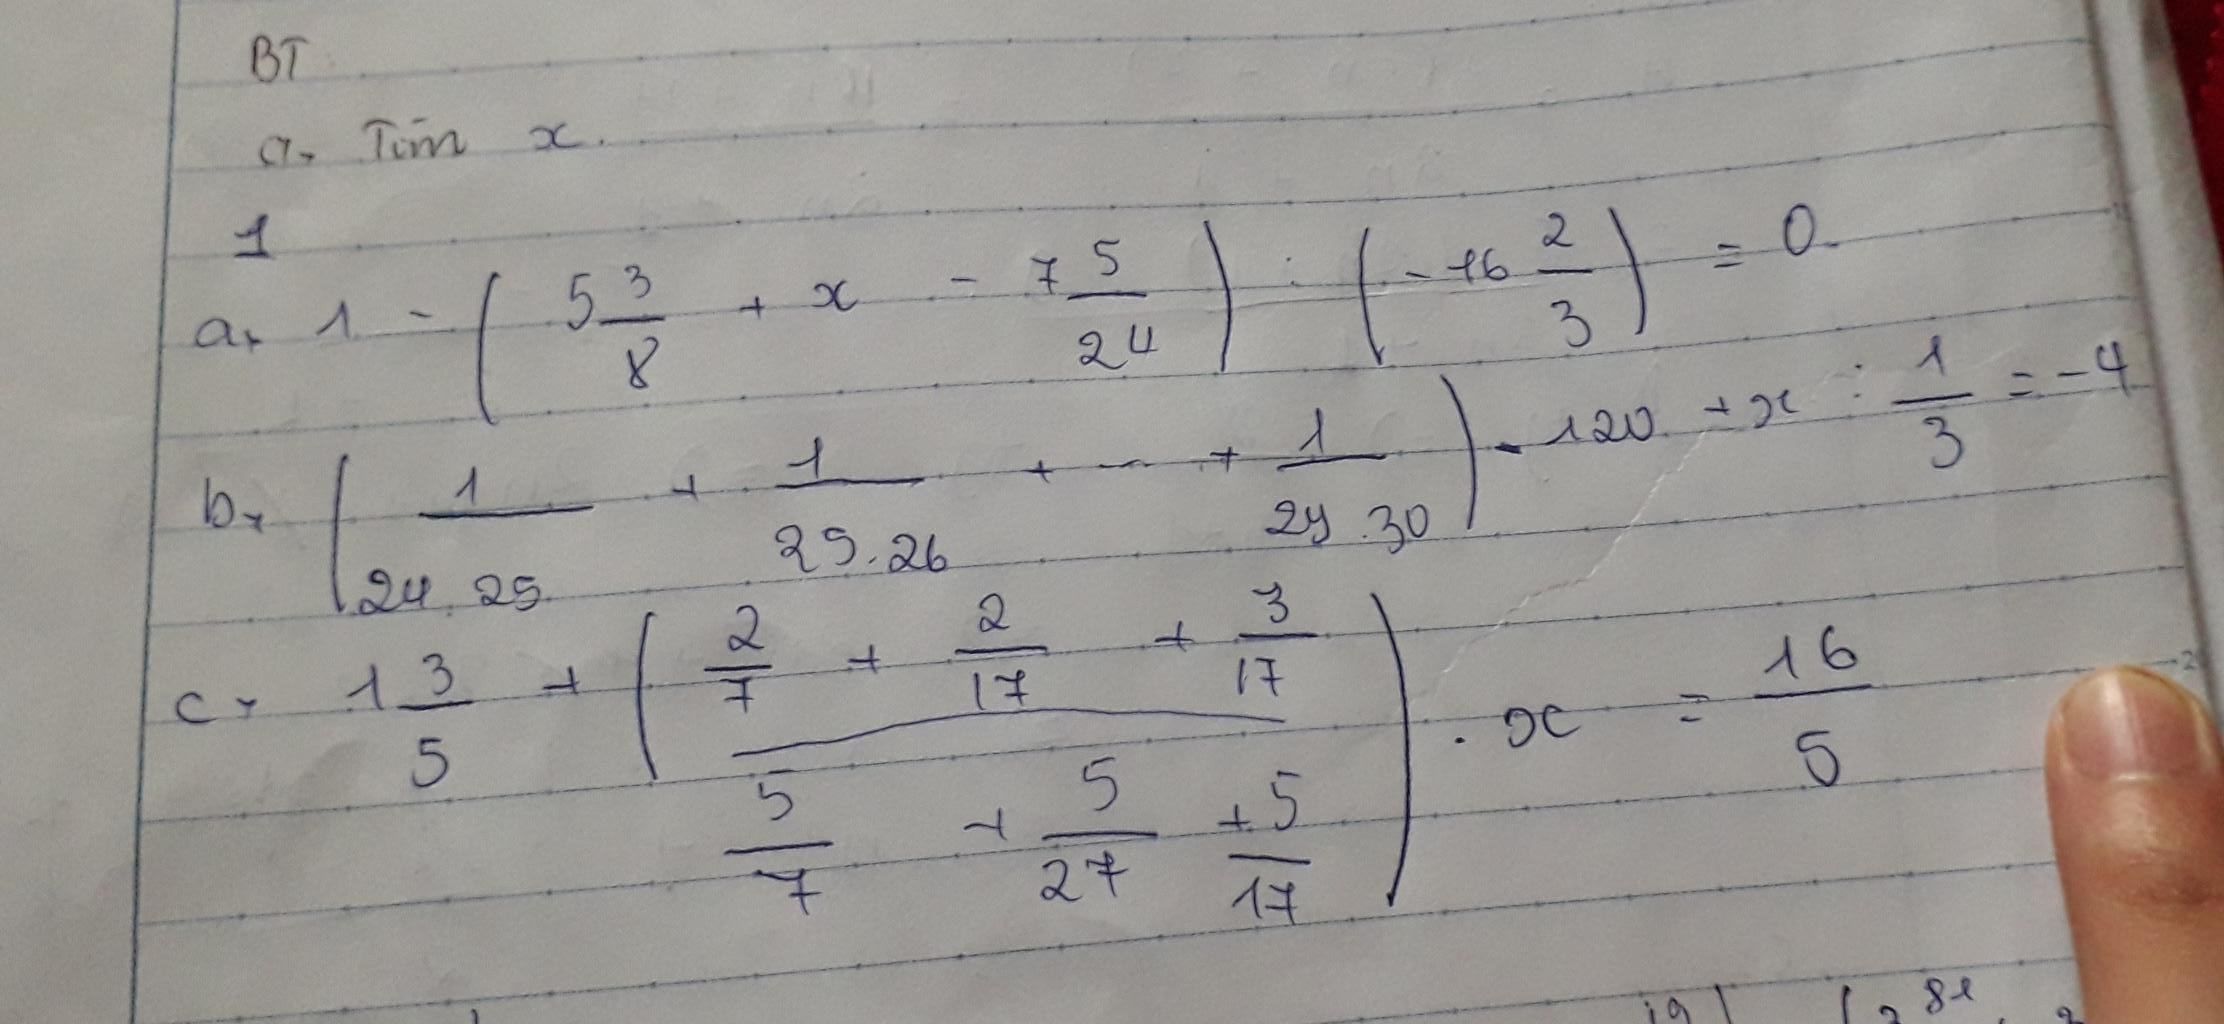 BT
a, Tìm x.
1
a, 1 - ( 5 3/8 + x - 7 5/24 ) : ( -16 2/3 ) = 0
b, ( 1/24.25 + 1/25.26 + ... + 1/29.30 ) . 120 + x : 1/3 = -4
c, 1 3/5 + ( (2/7 + 2/17 + 3/17) / (5/7 + 5/27 + 5/17) ) . x = 16/5